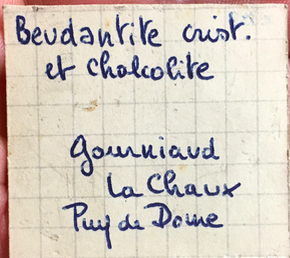 Beudantite crist.
et Chalcolite
Gourniaud
La Chaux
Puy de Dome